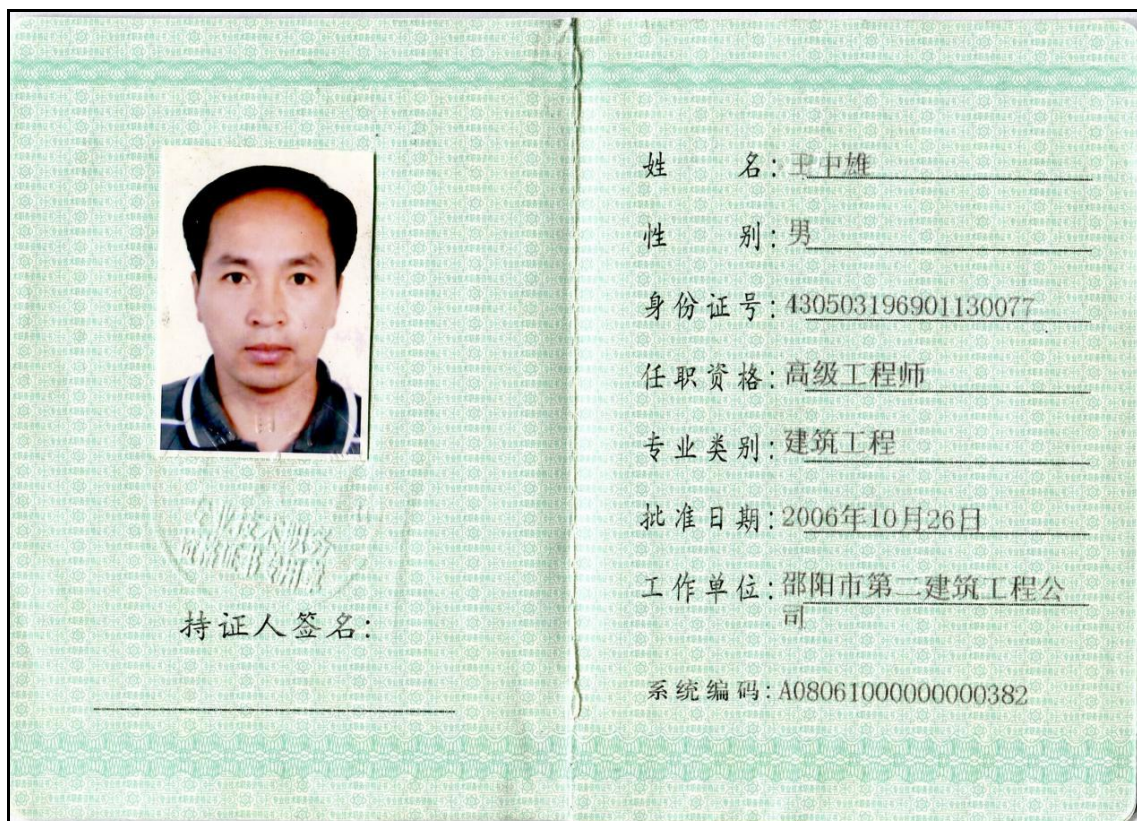 专业技术职务
资格证书专用章
持证人签名:
姓 名: 王中雄
性 别: 男
身份证号: 430503196901130077
任职资格: 高级工程师
专业类别: 建筑工程
批准日期: 2006年10月26日
工作单位: 邵阳市第二建筑工程公
司
系统编码: A08061000000000382